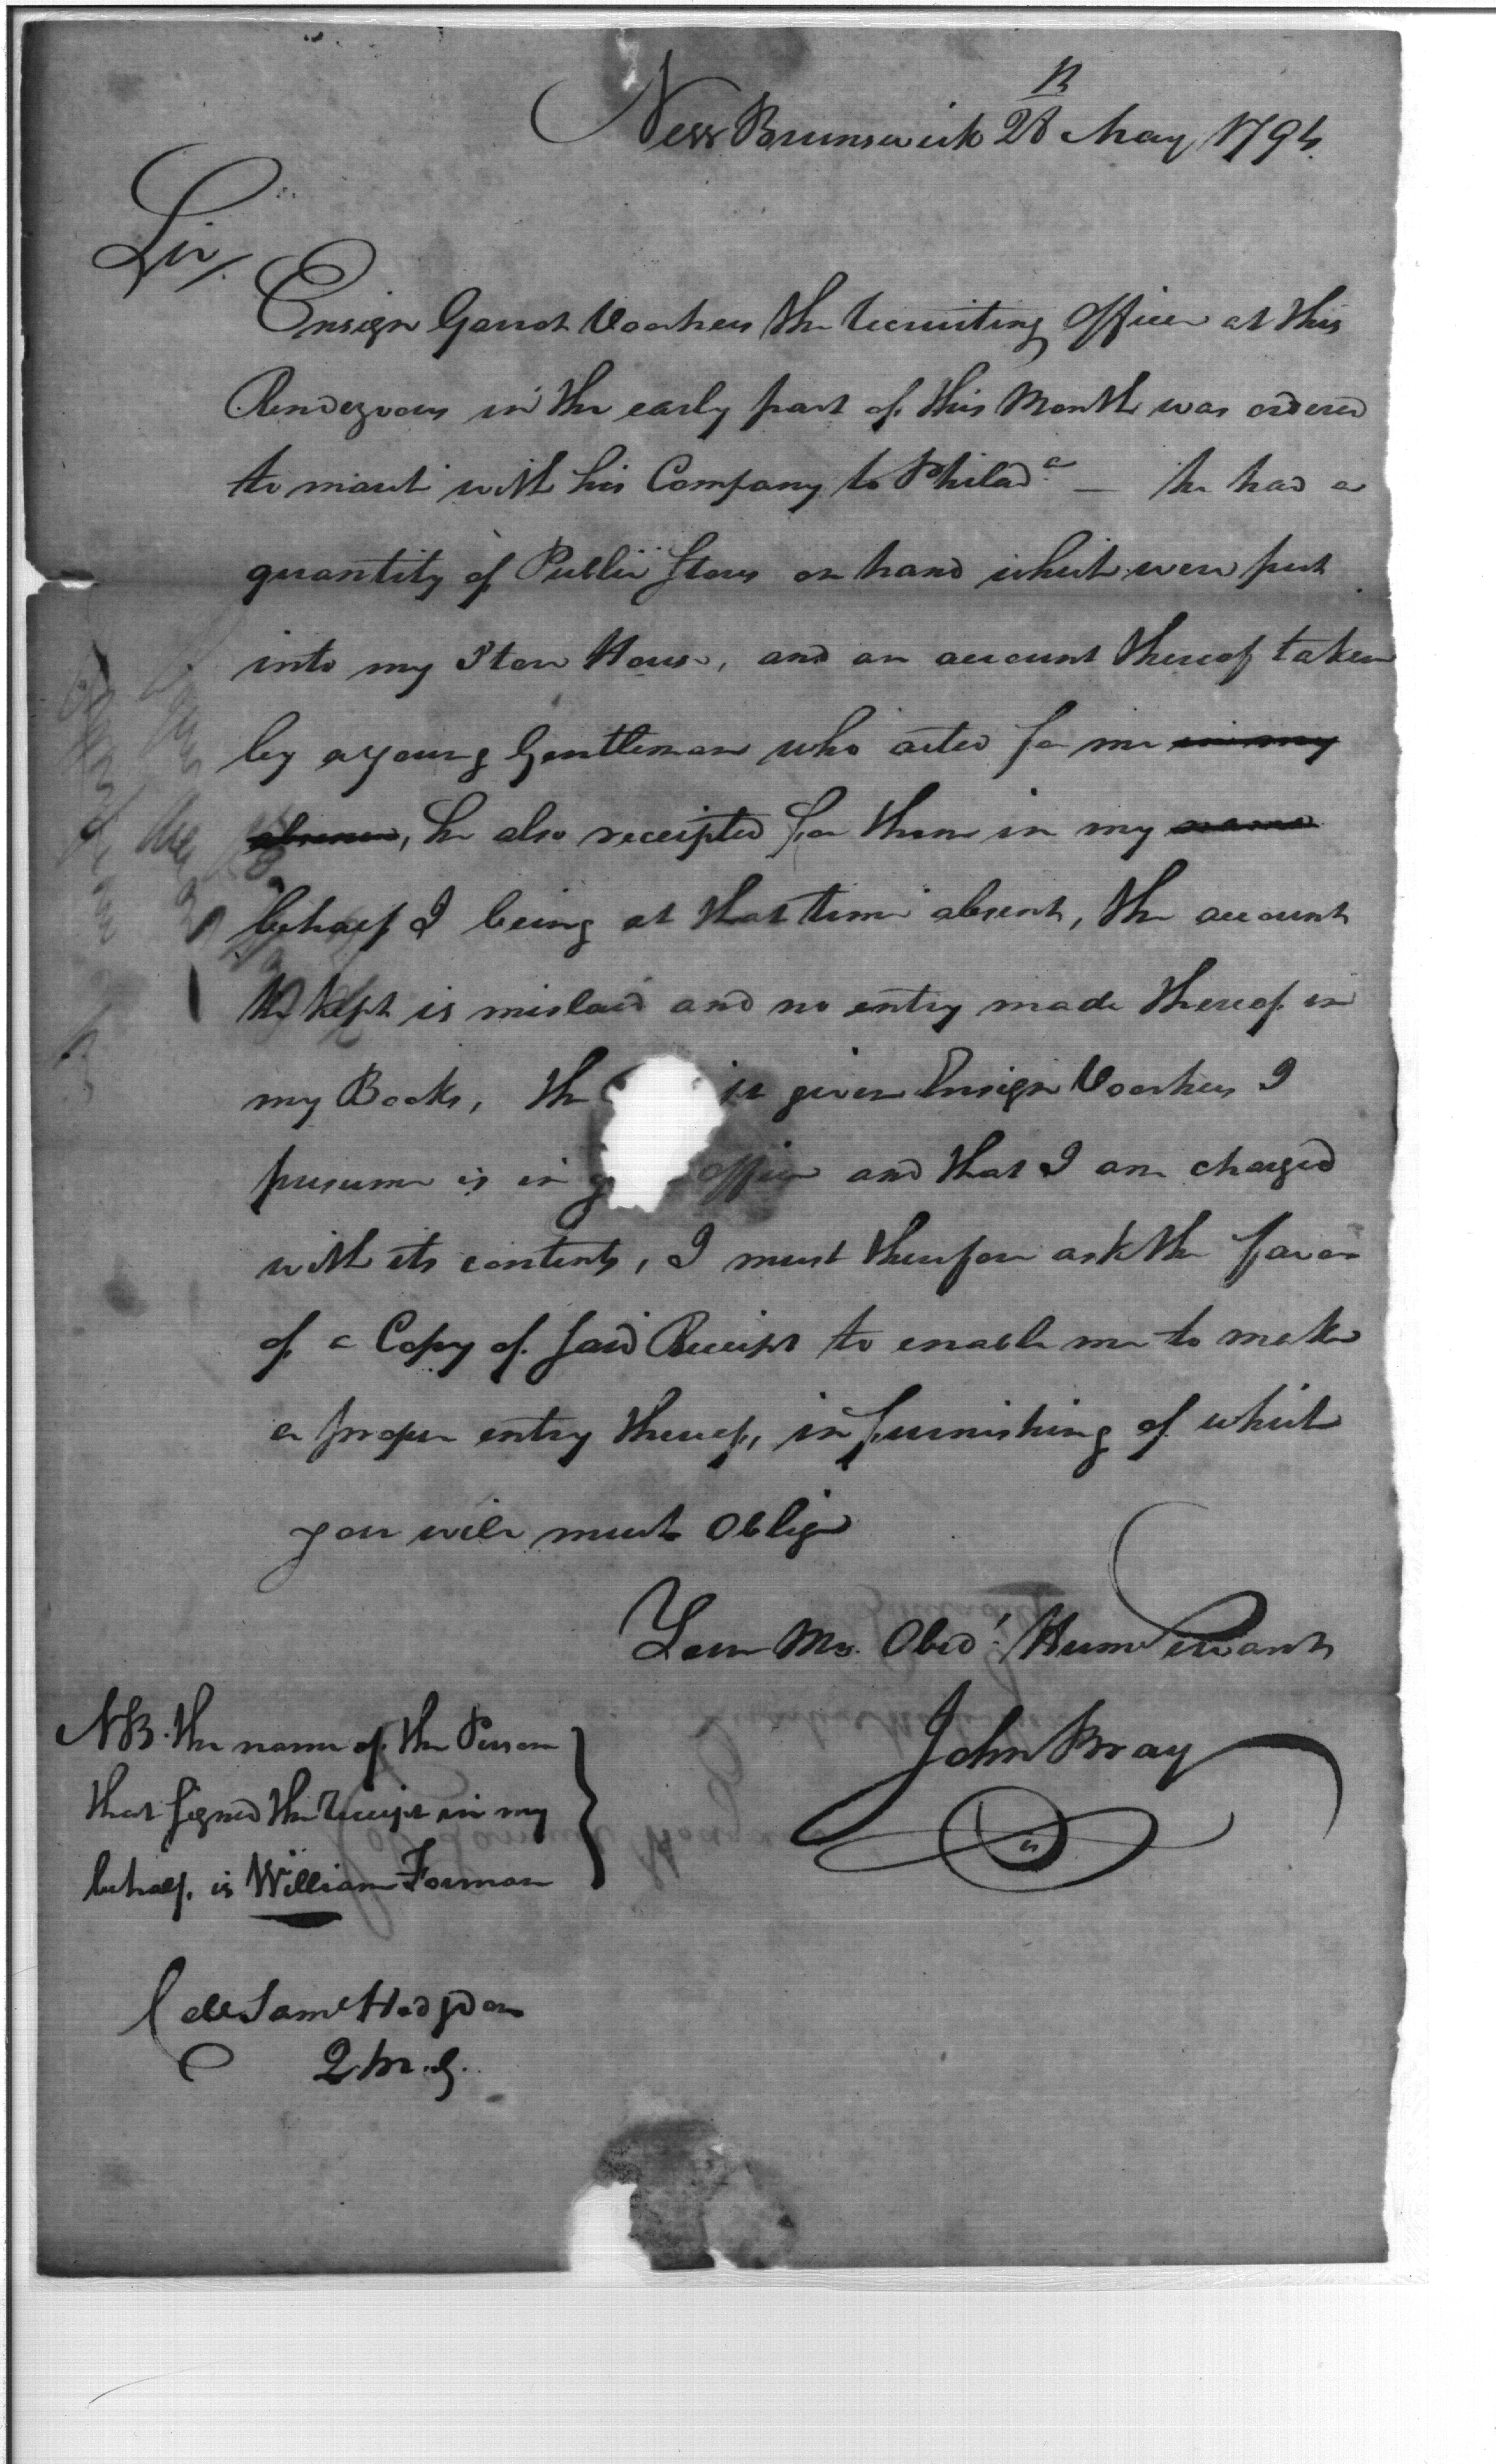 New Brunswick 28th May 1794.
Sir/.
Ensign Garrot Voorhees the recruiting Officer at this
Rendezvous in the early part of this Month was ordered
to march with his Company to Philada. — he had a
quantity of Public Stores on hand which were put
into my Store House, and an account thereof taken
by a young Gentleman who acted for me in my
absence, he also receipted for them in my name
behalf I being at that time absent, the account
he kept is mislaid and no entry made thereof in
my Books, the given Ensign Voorhees I
presume is in office and that I am charged
with its contents, I must therefore ask the favor
of a Copy of said Receipt to enable me to make
a proper entry thereof, in furnishing of which
you will much Oblige
Your Mo. Obed.t Hum Servant
John Bray
NB. the name of the Person
that signed the receipt in my
behalf. is William Forman
Coll Saml Hodgdon
Q.M.G.